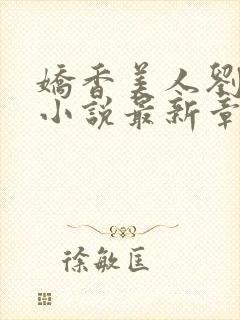 嬌香美人劉
小說最新章
徐敏匡